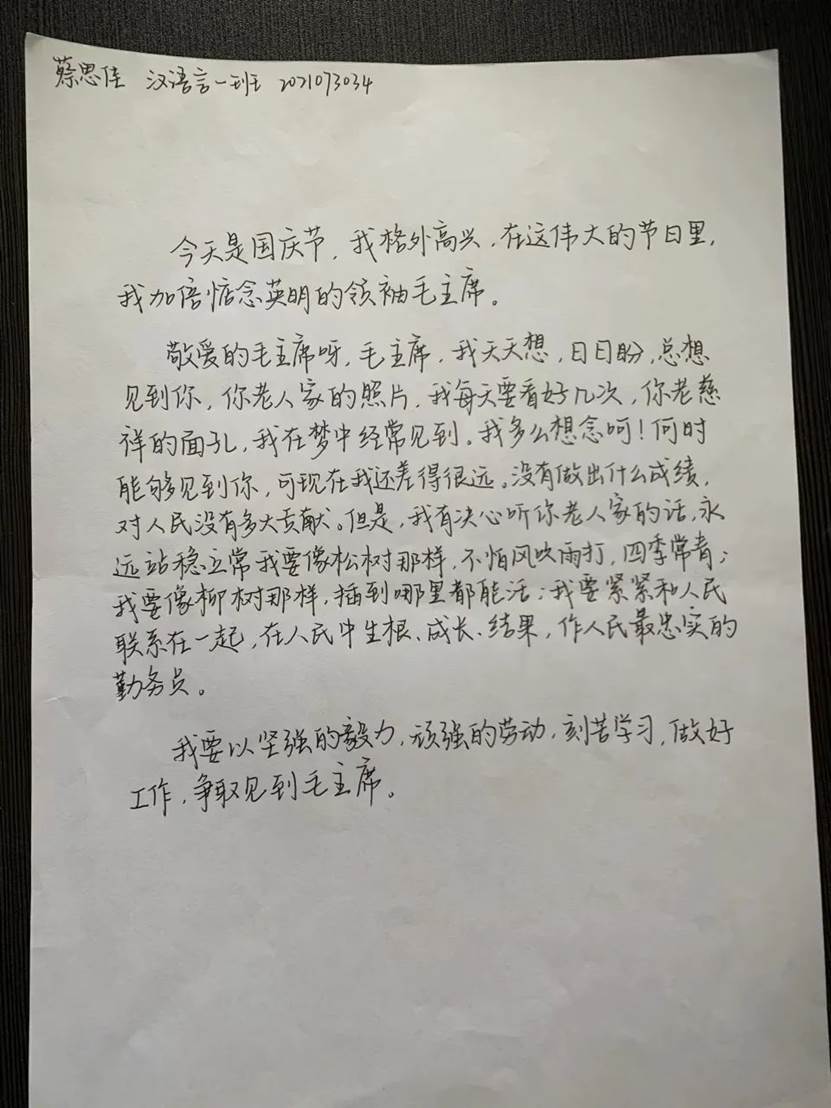 蔡思佳 汉语言一班 2021073034
今天是国庆节，我格外高兴，在这伟大的节日里，
我加倍惦念英明的领袖毛主席。
敬爱的毛主席呀，毛主席，我天天想，日日盼，总想
见到你，你老人家的照片，我每天要看好几次，你老慈
祥的面孔，我在梦中经常见到。我多么想念呵！何时
能够见到你，可现在我还差得很远。没有做出什么成绩，
对人民没有多大贡献。但是，我有决心听你老人家的话，永
远站稳立常我要像松树那样，不怕风吹雨打，四季常青；
我要像柳树那样，插到哪里都能活；我要紧紧和人民
联系在一起，在人民中生根、成长、结果，作人民最忠实的
勤务员。
我要以坚强的毅力，顽强的劳动，刻苦学习，做好
工作，争取见到毛主席。